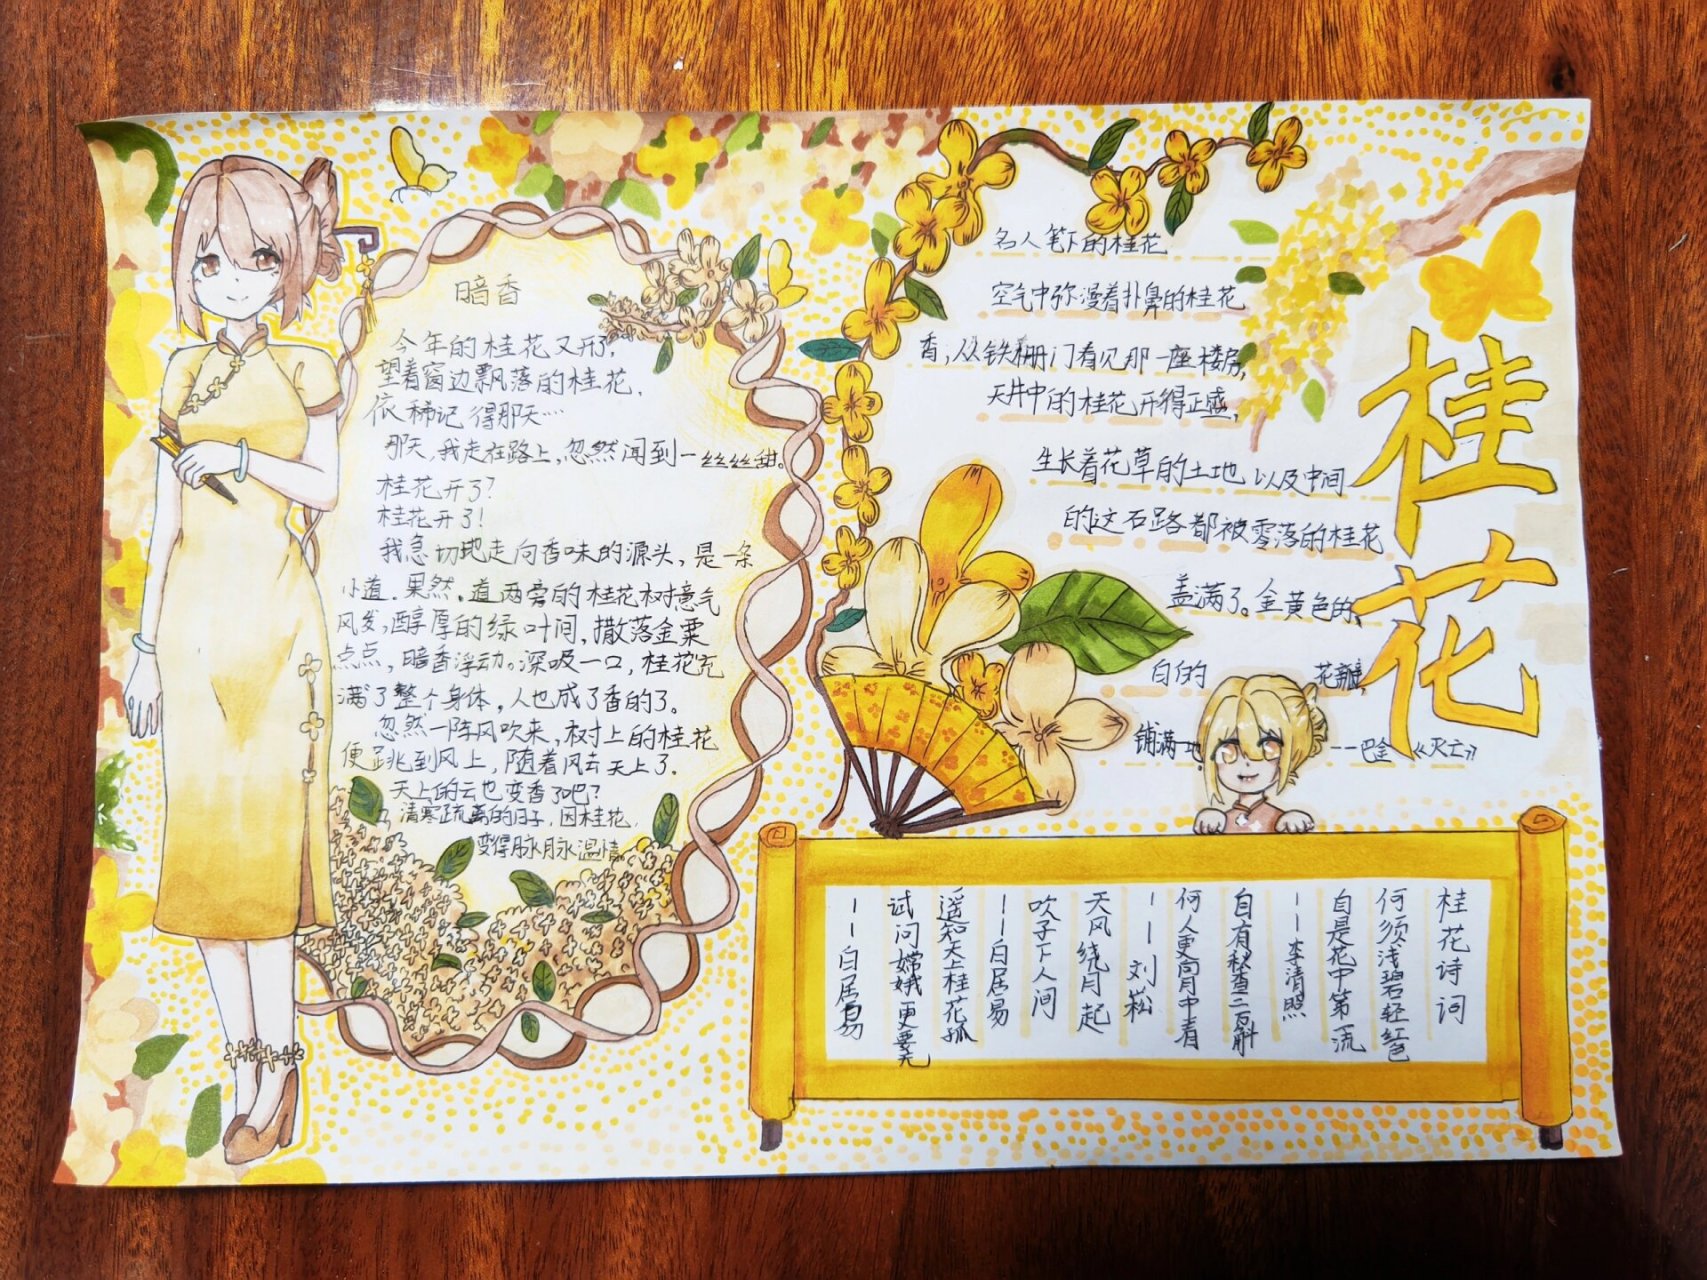 暗香
今年的桂花又开了,
望着窗边飘落的桂花,
依稀记得那天……
那天,我走在路上,忽然闻到一丝丝甜。
桂花开了?
桂花开了!
我急切地走向香味的源头,是一条
小道.果然,道两旁的桂花树意气
风发,醇厚的绿叶间,撒落金粟
点点,暗香浮动。深吸一口,桂花充
满了整个身体,人也成了香的了。
忽然一阵风吹来,树上的桂花
便跳到风上,随着风去天上了.
天上的云也变香了吧?
清寒疏离的日子,因桂花,
变得脉脉温情
名人笔下的桂花
空气中弥漫着扑鼻的桂花
香,从铁栅门看见那一座楼房,
天井中的桂花开得正盛,
生长着花草的土地以及中间
的这石路都被零落的桂花
盖满了。金黄色的,
白的 花瓣,
铺满一地 --巴金《灭亡》
桂花
桂花诗词
何须浅碧轻红色
自是花中第一流
--李清照
自有秋香三百斛
何人更向月中看
--刘崧
天风绕月起
吹子下人间
--白居易
遥知天上桂花孤
试问嫦娥更要无
--白居易